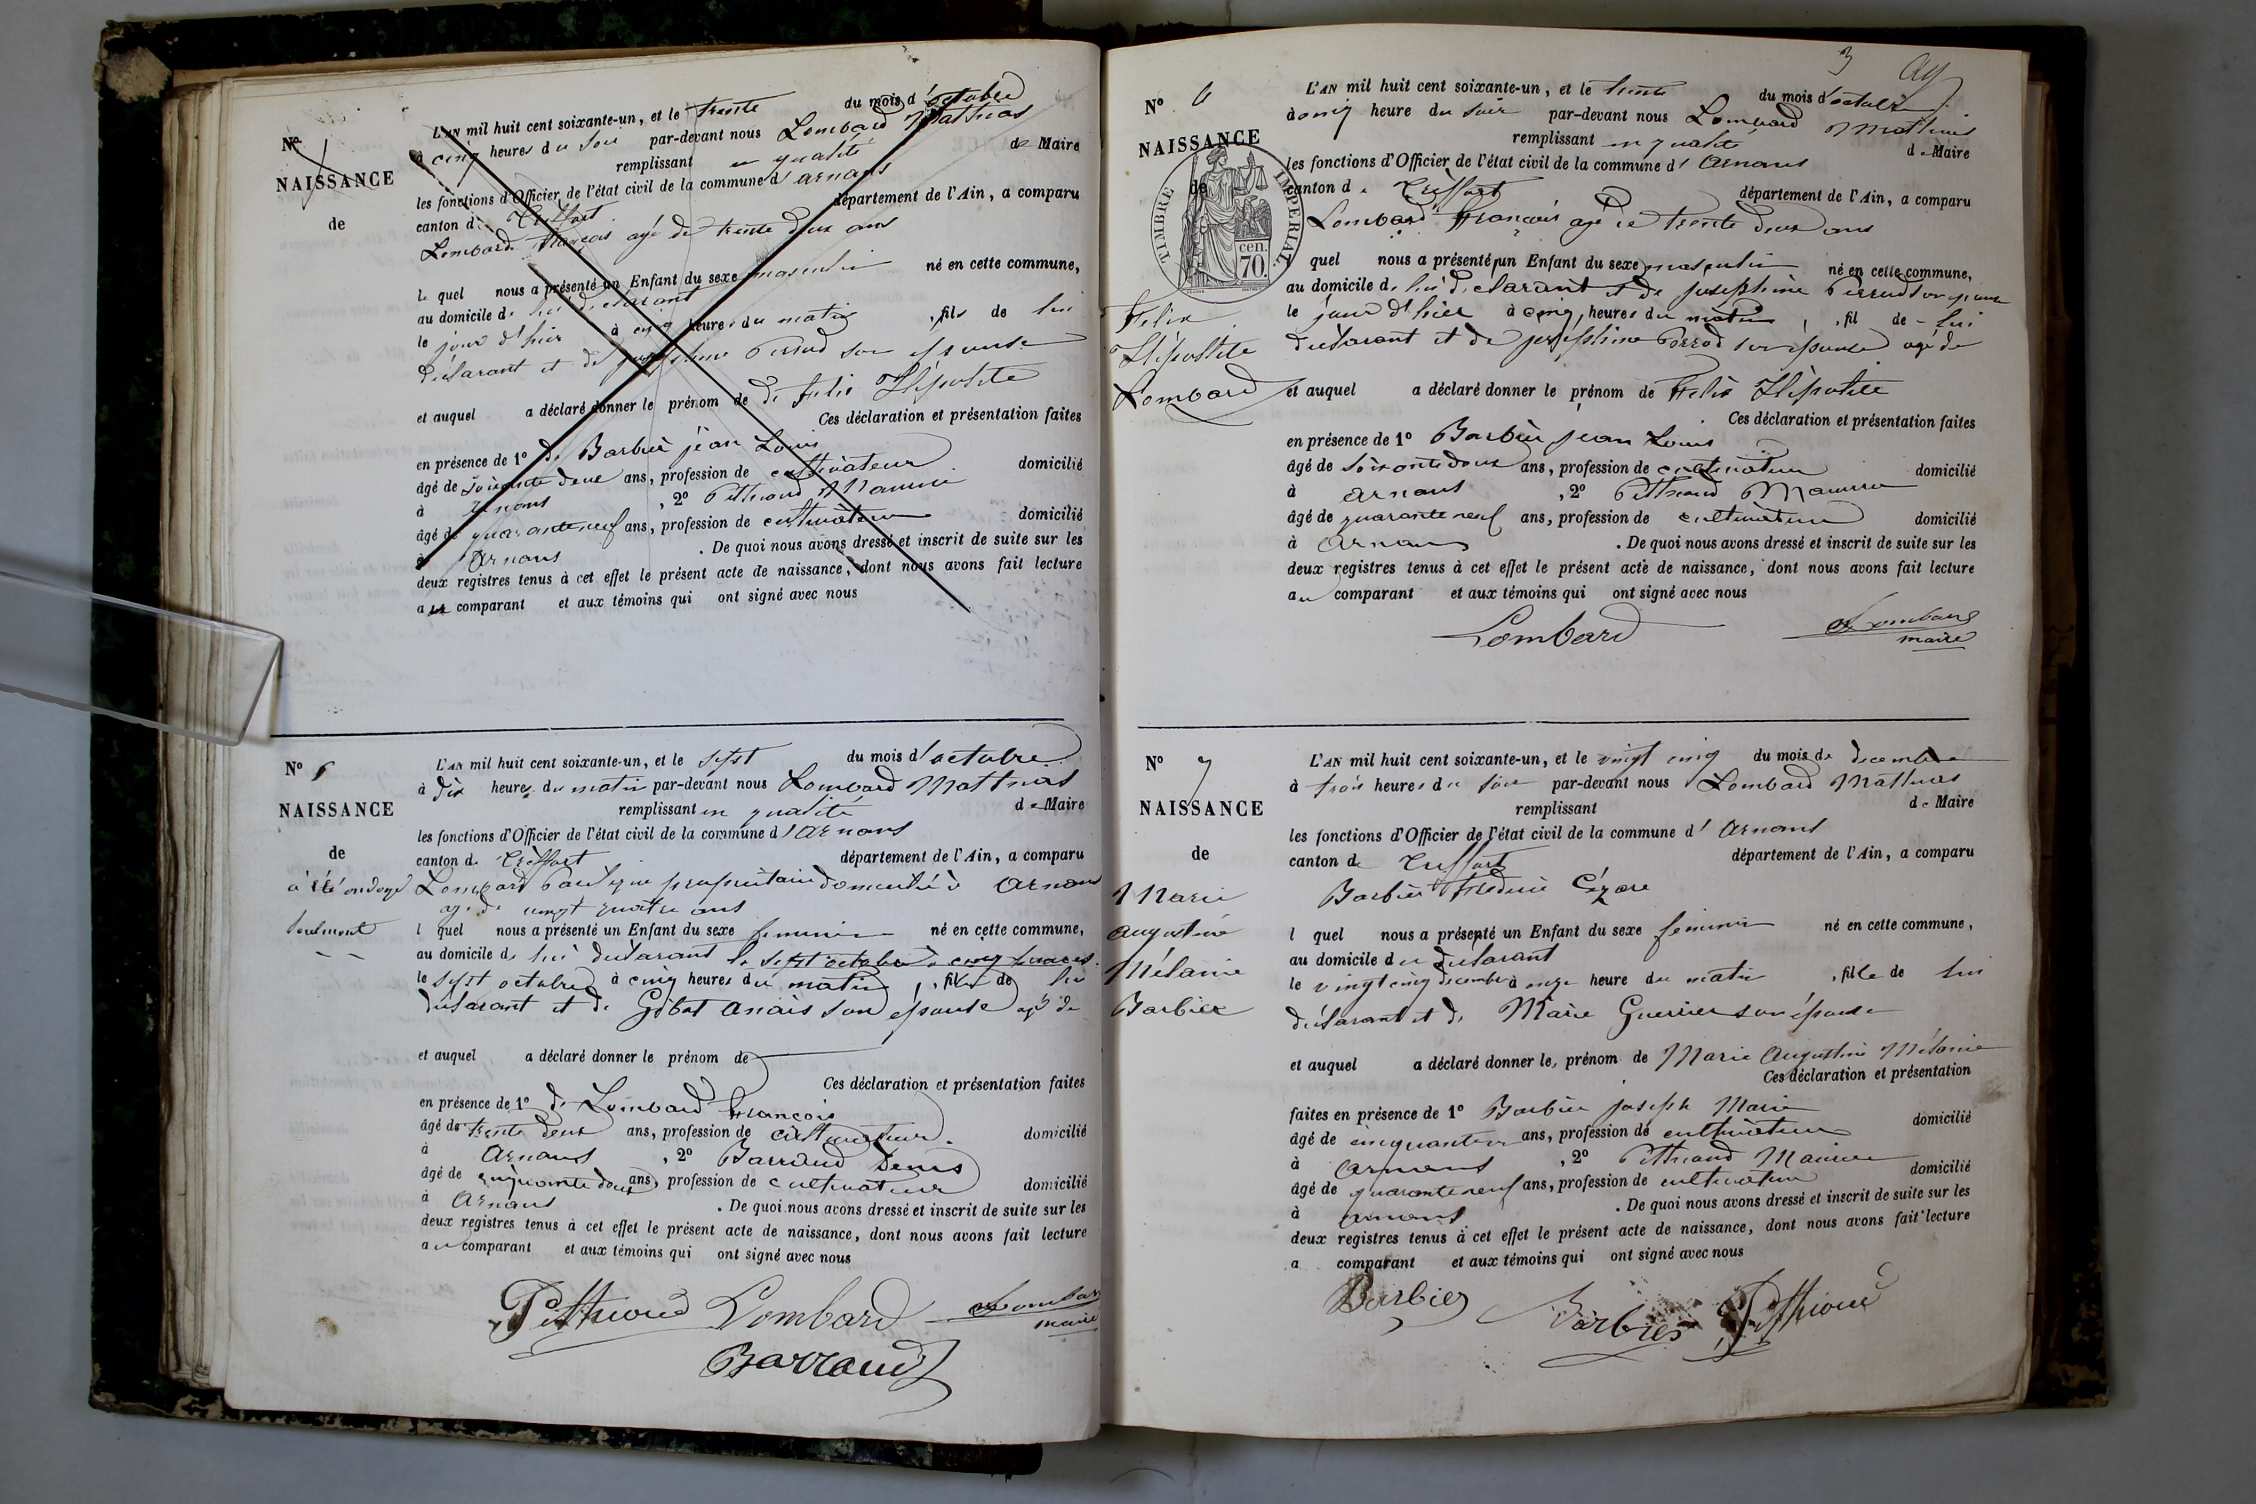 No
NAISSANCE
de
L'AN mil huit cent soixante-un, et le trente du mois d'octobre
à cinq heures du soir par-devant nous Lombard Mathias
remplissant en qualité de Maire
les fonctions d'Officier de l'état civil de la commune d'Arnans
canton de Treffort département de l'Ain, a comparu
Lombard François agé de trente deux ans
le quel nous a présenté un Enfant du sexe masculin né en cette commune,
au domicile de lui déclarant
le jour d'hier à cinq heures du matin, fils de lui
déclarant et de josephine Perrod son epouse
et auquel a déclaré donner le prénom de de Felix Hÿpolite
Ces déclaration et présentation faites
en présence de 1o de Barbier jean Louis
âgé de soixante deux ans, profession de cultivateur domicilié
à Arnans, 2o Pithioud Maurice
âgé de quarante neuf ans, profession de cultivateur domicilié
à Arnans . De quoi nous avons dressé et inscrit de suite sur les
deux registres tenus à cet effet le présent acte de naissance, dont nous avons fait lecture
au comparant et aux témoins qui ont signé avec nous
No 5
NAISSANCE
de
a été ondoyé
seulment
L'AN mil huit cent soixante-un, et le sept du mois d'octobre
à dix heures du matin par-devant nous Lombard Mathias
remplissant en qualité de Maire
les fonctions d'Officier de l'état civil de la commune d'Arnans
canton de Treffort département de l'Ain, a comparu
Lombard propriétaire domicilié à Arnans
agé de vingt quatre ans
l quel nous a présenté un Enfant du sexe feminin né en cette commune,
au domicile de lui déclarant le sept octobre à cinq heures
le sept octobre à cinq heures du matin, fille de lui
déclarant et de Gibot Anaïs son epouse agé de
et auquel a déclaré donner le prénom de
Ces déclaration et présentation faites
en présence de 1o de Lombard François
âgé de trente deux ans, profession de cultivateur domicilié
à Arnans, 2o Barraud Denis
âgé de cinquante deux ans, profession de cultivateur domicilié
à Arnans . De quoi nous avons dressé et inscrit de suite sur les
deux registres tenus à cet effet le présent acte de naissance, dont nous avons fait lecture
au comparant et aux témoins qui ont signé avec nous
Pithioud Lombard Lombard
maire
Barraud
3
No 6
NAISSANCE
de
TIMBRE IMPERIAL
70 cen.
Felix
Hÿpolite
Lombard
L'AN mil huit cent soixante-un, et le trente du mois d'octobre
à cinq heure du soir par-devant nous Lombard Mathias
remplissant en qualité de Maire
les fonctions d'Officier de l'état civil de la commune d'Arnans
canton de Treffort département de l'Ain, a comparu
Lombard François agé de trente deux ans
quel nous a présenté un Enfant du sexe masculin né en cette commune,
au domicile de lui déclarant et de josephine Perrod son epouse
le jour d'hier à cinq heures du matin, fil de lui
déclarant et de joséphine Perrod son épouse agé de
et auquel a déclaré donner le prénom de Felix Hÿpolite
Ces déclaration et présentation faites
en présence de 1o Barbier jean Louis
âgé de soixante deux ans, profession de cultivateur domicilié
à Arnans, 2o Pithioud Maurice
âgé de quarante neuf ans, profession de cultivateur domicilié
à Arnans . De quoi nous avons dressé et inscrit de suite sur les
deux registres tenus à cet effet le présent acte de naissance, dont nous avons fait lecture
au comparant et aux témoins qui ont signé avec nous
Lombard Lombard
maire
No 7
NAISSANCE
de
Marie
Augustine
Mélanie
Barbier
L'AN mil huit cent soixante-un, et le vingt cinq du mois de decembre
à trois heures du soir par-devant nous Lombard Mathias
remplissant de Maire
les fonctions d'Officier de l'état civil de la commune d'Arnans
canton de Treffort département de l'Ain, a comparu
Barbier Frederic Cézare
l quel nous a présenté un Enfant du sexe feminin né en cette commune,
au domicile du déclarant
le vingt cinq decembre à onze heure du matin, fille de lui
déclarant et de Marie Guerrier son épouse
et auquel a déclaré donner le prénom de Marie Augustine Mélanie
Ces déclaration et présentation
faites en présence de 1o Barbier joseph Marie
âgé de ans, profession de cultivateur domicilié
à Arnans, 2o Pithioud Maurice
âgé de quarante neuf ans, profession de cultivateur domicilié
à Arnans . De quoi nous avons dressé et inscrit de suite sur les
deux registres tenus à cet effet le présent acte de naissance, dont nous avons fait lecture
a comparant et aux témoins qui ont signé avec nous
Barbier Barbier Pithioud